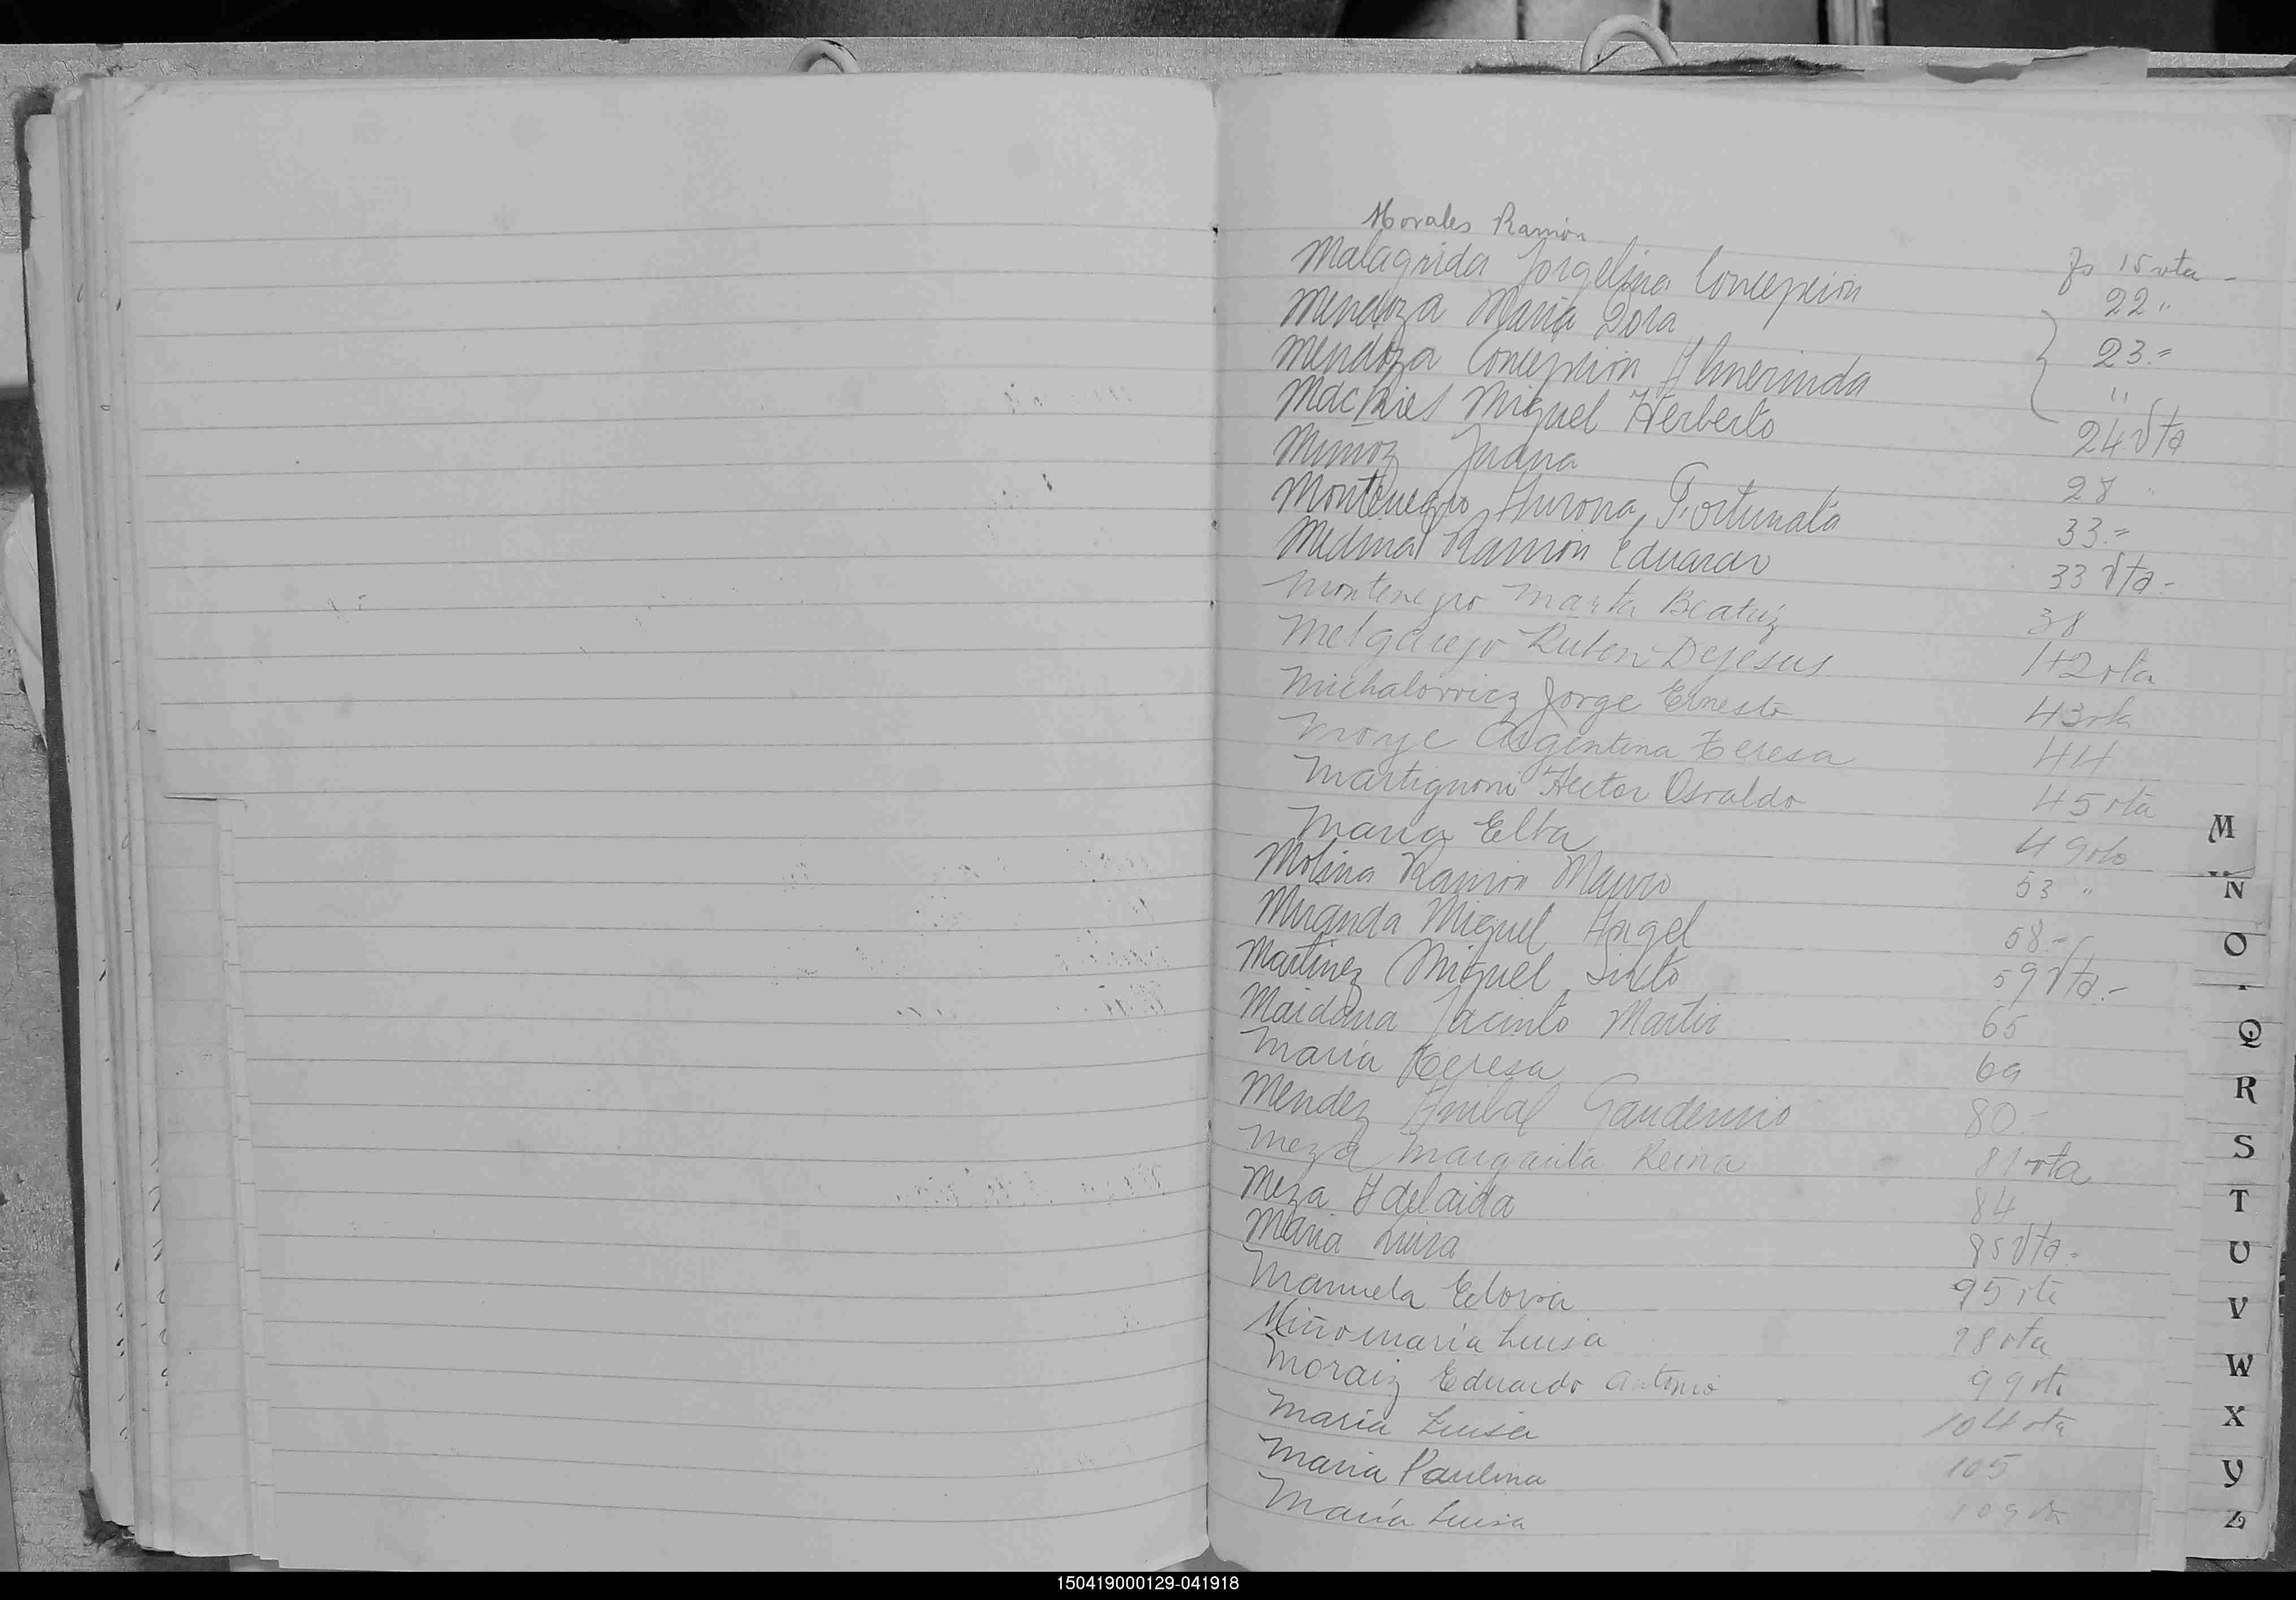 Morales Ramón
Malagrida Jorgelina Concepción fs 15 vta -
Mendoza Maria Dora 22 "
Mendoza Concepción Almerinda 23.=
Machies Miguel Herberto "
Munoz Juana 24 Vta
Montenegro Aurora Fortunata 28 "
Medina Ramon Eduardo 33.=
Montenegro Marta Beatriz 33 Vta-
Melgarejo Ruben Dejesus 38
Michalowicz Jorge Ernesto 42 vta
Moye Argentina Teresa 43 vta
Martignoni Hector Osvaldo 44
Maria Elba 45 vta
Molina Ramon Mauro 49 vto
Miranda Miguel Angel 53 "
Martinez Miguel Sixto 58.-
Maidana Jacinto Martir 59 Vta.-
María Teresa 65
Mendez Anibal Gaudencio 69
Meza Margarita Reina 80.-
Meza Adelaida 81 vta
Maria Luisa 84
Manuela Elovra 85 Vta.
Miño María Luisa 95 vta
Moraiz Eduardo Antonio 98 vta
María Luisa 99 vta
Maria Paulina 104 vta
María Luisa 105
109 vta
M
N
O
Q
R
S
T
U
V
W
X
Y
Z
150419000129-041918